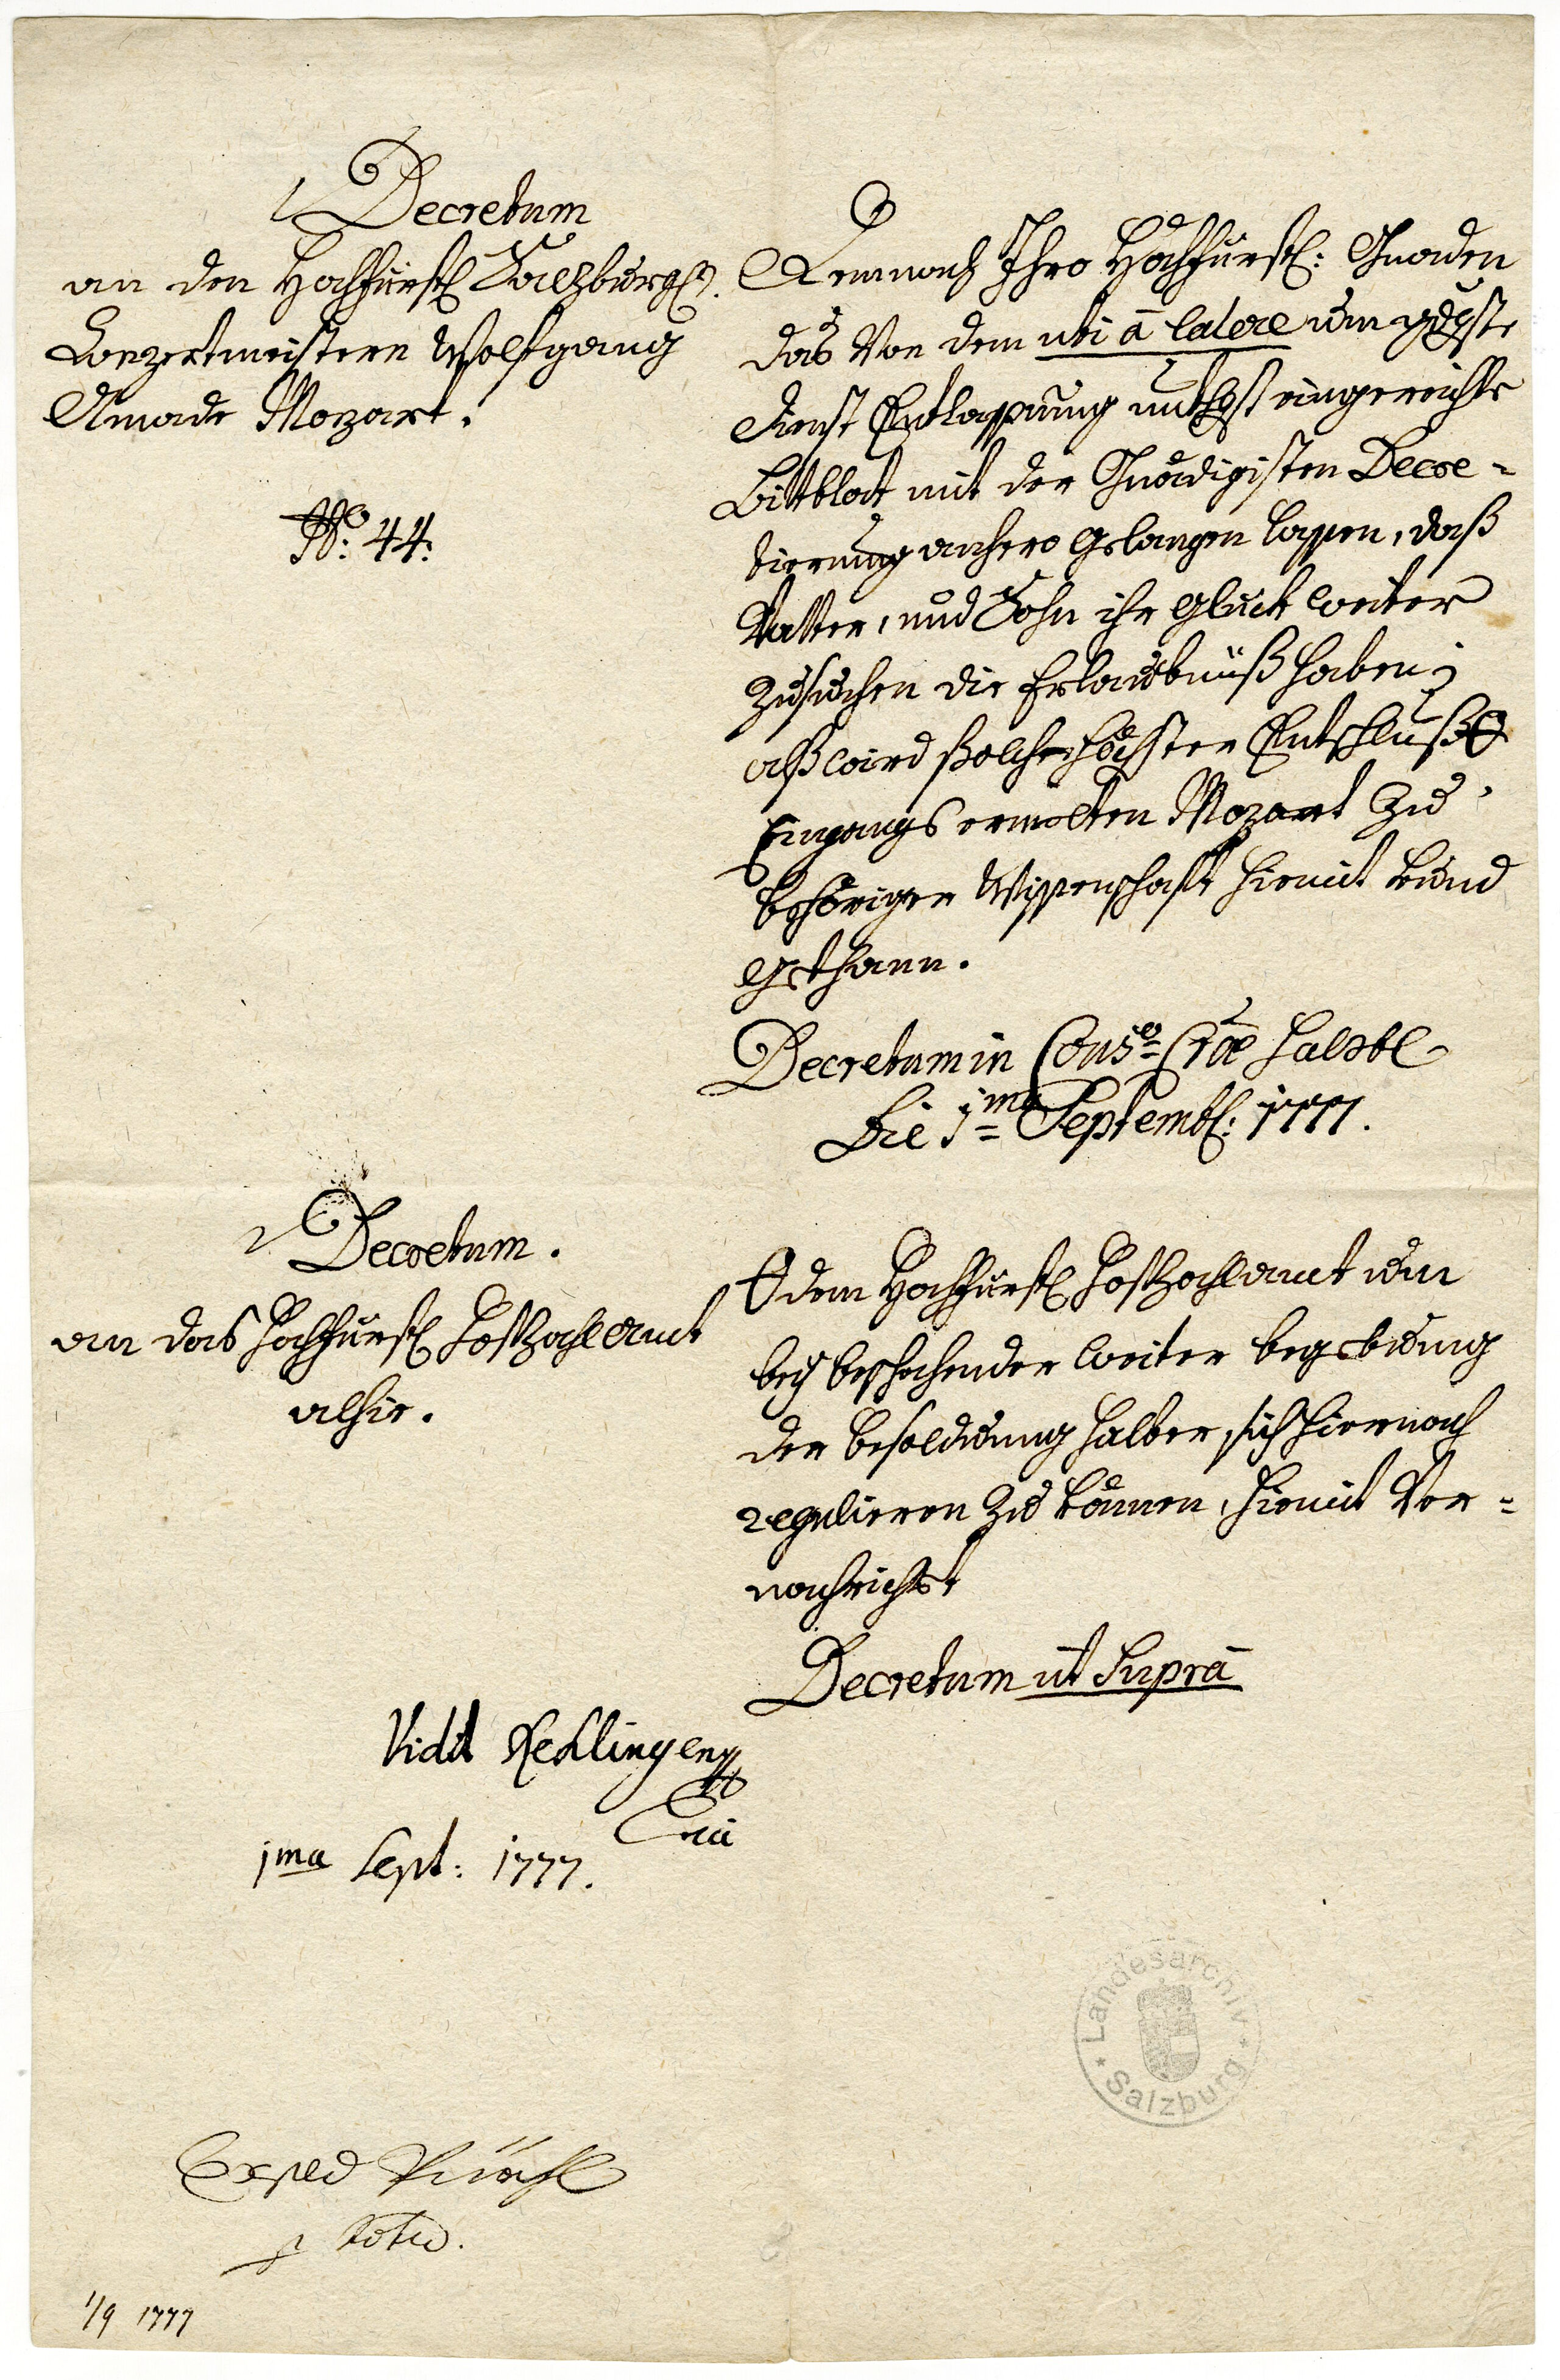 Decretum
an den Hochfürstl Salzburgl.
Conzertmeistern Wolfgang
Amade Mozart.
No: 44:
Demnach Ihro Hochfürstl: Gnaden
das von dem ubi à latere um gdgste
dienst Entlassung unthgst eingereichte
Bittblat mit der Gnädigisten Decre=
tierung anhero gelangen lassen, daß
Vatter, und Sohn ihr Glück weiter
zusuchen die Erlaubnüß haben;
alß wird solche höchster Entschluß
Eingangs ermelten Mozart zu
behöriger Wissenschaft hiemit kund
gethann.
Decretum in Cons:
Die 1ma Septembl: 1777.
Decretum.
an das hochfürstl Hofzahlamt
alhir.
dem Hochfürstl hofzahlamt um
bey beschehender weiter begebung
der besoldung halber, sich hiernach
regulieren zu können, hiemit ver=
nachrichtet
Decretum ut Suprà
Vidit Rechlingen
1ma Sept: 1777.
Landesarchiv
Salzburg
Exped
1/9 1777